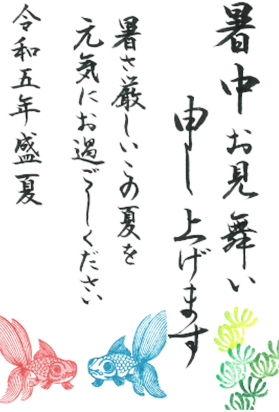 暑中お見舞い
申し上げます
暑さ厳しいこの夏を
元気にお過ごしください
令和五年盛夏